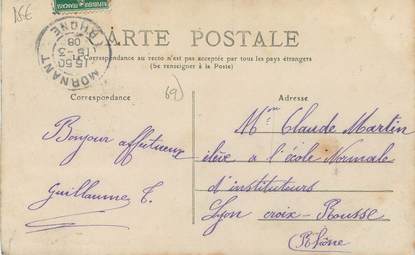 15€
CARTE POSTALE
Correspondance au recto n'est pas acceptée par tous les pays étrangers
(Se renseigner à la Poste)
MORNANT
RHÔNE
15 50
15 - 3
08
69
Correspondance
Adresse
Bonjour affectueux
Guillaume T.
Mr Claude Martin
élève a l'école Normale
d'instituteurs
Lyon croix-Rousse
Rhône